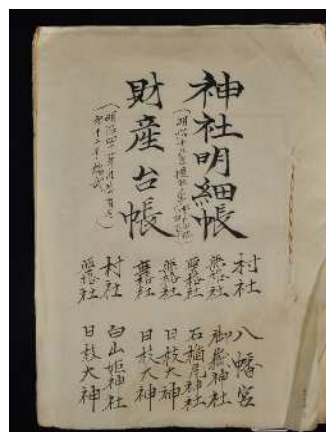 神社明細帳
財産台帳
村社 八幡宮
無格社 御嶽神社
無格社 石楯尾神社
無格社 日枝大神
無格社 日枝大神
村社 白山姫神社
無格社 日枝大神